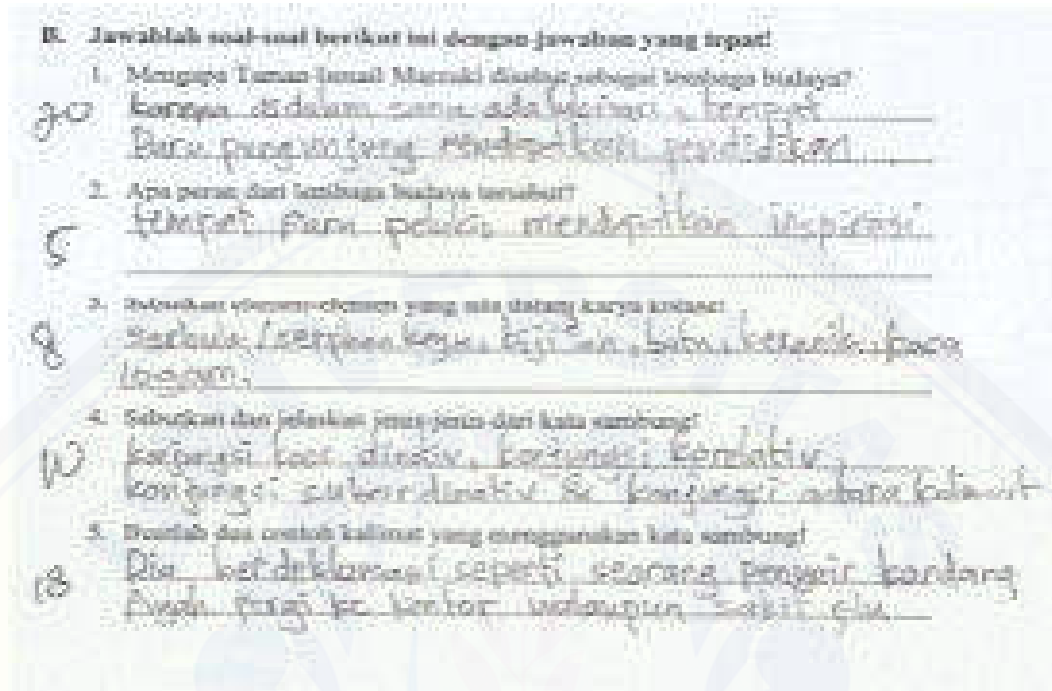 B. Jawablah soal-soal berikut ini dengan jawaban yang tepat!
1. Mengapa Taman Ismail Marzuki disebut sebagai lembaga budaya?
20 karena didalam sana ada tempat
Para pengunjung mendapatkan pendidikan
2. Apa peran dari lembaga budaya tersebut?
5 tempat para pelukis mendapatkan inspirasi
3. Sebutkan elemen-elemen yang ada dalam karya kolase!
8 Serbuk/serpihan kayu, biji-an, batu, keramik,
logam.
4. Sebutkan dan jelaskan jenis-jenis dari kata sambung!
10 konjungsi koordinativ, konjungsi korelativ,
konjungsi subordinativ & konjungsi antara kalimat
5. Buatlah dua contoh kalimat yang menggunakan kata sambung!
18 Dia berdeklamasi seperti seorang penyair kondang
Ayah pergi ke kantor walaupun sakit flu